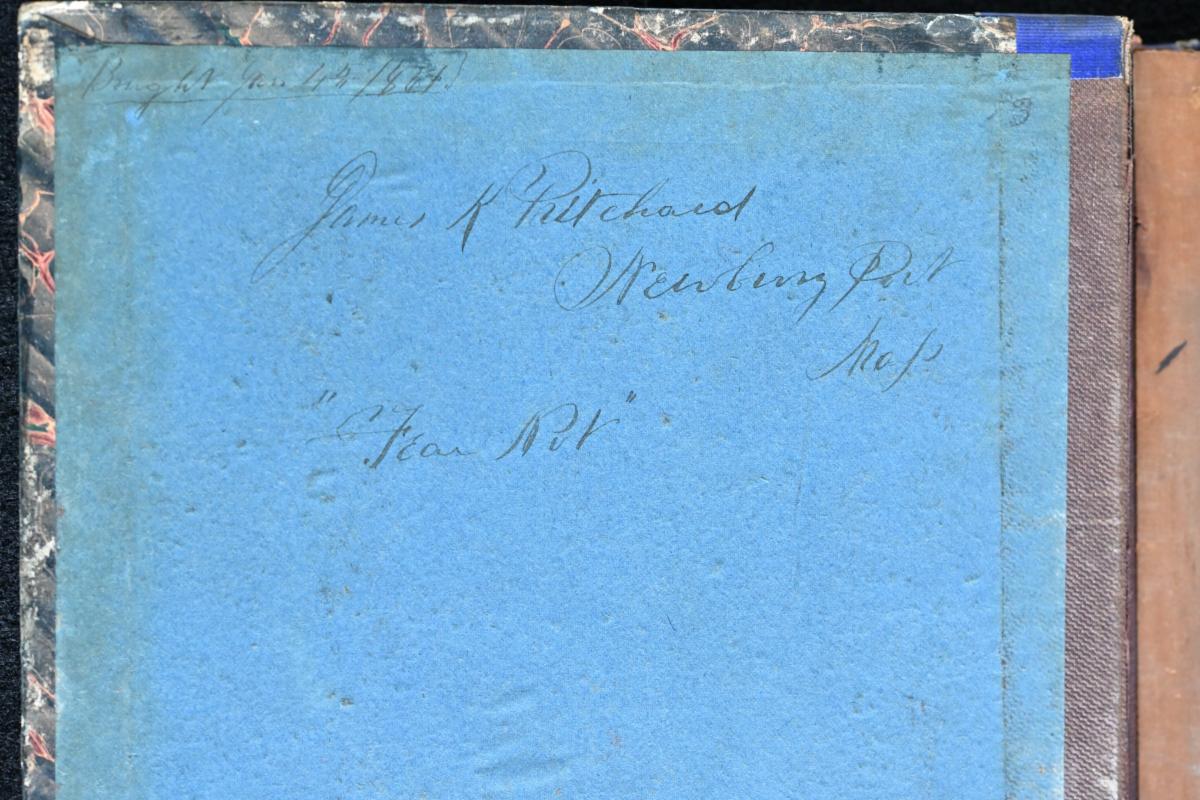 Bought Jan 4th
James K Pritchard
Newbury Port
Mass
"Fear Not"